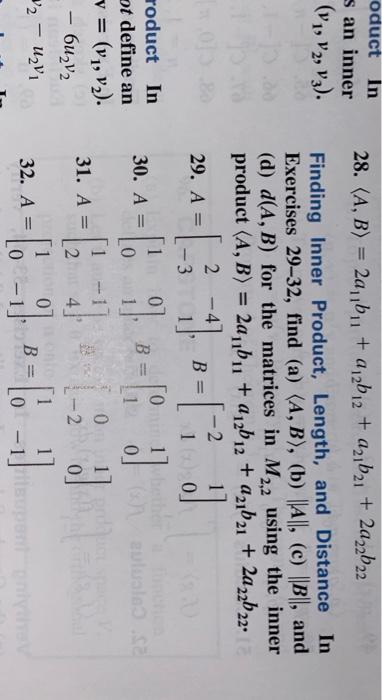 oduct In
s an inner
(v₁, v₂, v₃).
roduct In
ot define an
v = (v₁, v₂).
− 6u₂v₂
v₂ − u₂v₁
28. ⟨A, B⟩ = 2a₁₁b₁₁ + a₁₂b₁₂ + a₂₁b₂₁ + 2a₂₂b₂₂
Finding Inner Product, Length, and Distance In
Exercises 29–32, find (a) ⟨A, B⟩, (b) ||A||, (c) ||B||, and
(d) d(A, B) for the matrices in M₂,₂ using the inner
product ⟨A, B⟩ = 2a₁₁b₁₁ + a₁₂b₁₂ + a₂₁b₂₁ + 2a₂₂b₂₂.
29. A = [2 −4; −3 1], B = [−2 1; 1 0]
30. A = [1 0; 0 1], B = [0 1; 1 0]
31. A = [1 −1; 2 4], [0 1; −2 0]
32. A = [1 0; 0 −1], B = [1 1; 0 −1]